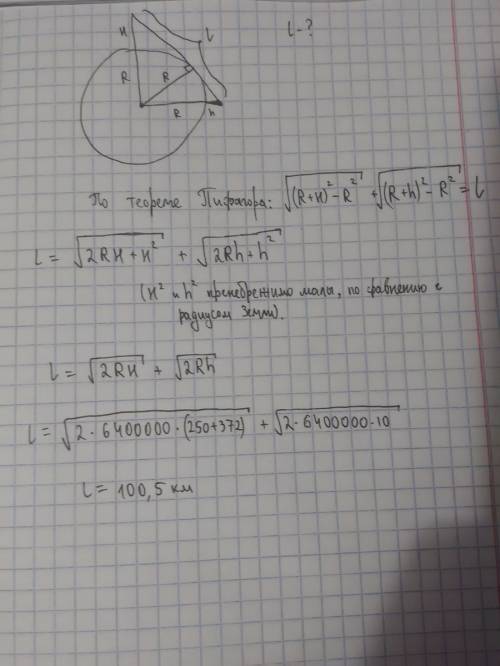 H
l
l - ?
R
R
R
h
По теореме Пифагора: √((R+H)² - R²) + √((R+h)² - R²) = l
l = √(2RH + H²) + √(2Rh + h²)
(H² и h² пренебрежимо малы, по сравнению с
радиусом Земли).
l = √(2RH) + √(2Rh)
l = √(2·6400000·(250+372)) + √(2·6400000·10)
l = 100,5 км